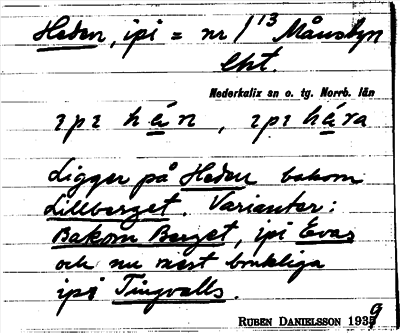 Heden, ipi = nr 1/13 Månsbyn
Ekt.
Nederkalix sn o. tg. Norrb. län
ɪpɪ hän, ɪpɪ hära
Ligger på Heden bakom
Lillberget. Varianter:
Bakom Berget, ipi Evas
och nu mest brukliga
ipi Tingvalls.
RUBEN DANIELSSON 1939